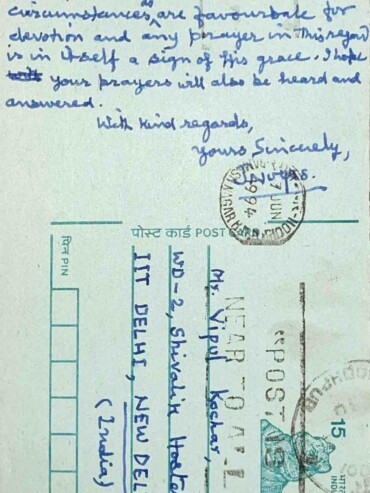 circumstances are favourable for
devotion and any prayer in this regard
is in itself a sign of His grace. I hope
your prayers will also be heard and
answered.
With kind regards,
Yours Sincerely,
पोस्ट कार्ड POST
पिन PIN
Mr. Vipul Kochar,
WD-2, Shivalik
IIT DELHI, NEW DEL
(India)
"POST IS
NEAR TO ALL
JUN
15